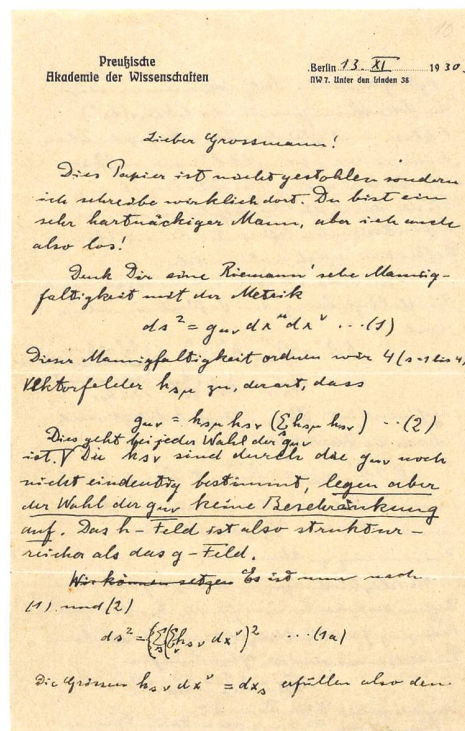 10
Preußische
Akademie der Wissenschaften
Berlin 13. XI 1930.
NW 7. Unter den Linden 38
Lieber Grossmann!
Dies Papier ist nicht gestohlen sondern
ich schreibe wirklich dort. Du bist ein
sehr hartnäckiger Mann, aber ich auch
also los!
Denk Dir eine Riemann'sche Mannig-
faltigkeit mit der Metrik
ds² = gμν dxμ dxν ... (1)
Dieser Mannigfaltigkeit ordnen wir 4 (s=1 bis 4)
Vektorfelder hsμ zu, derart, dass
gμν = hsμ hsν (Σs hsμ hsν) ... (2)
Dies geht bei jeder Wahl der gμν
ist. Die hsν sind durch die gμν noch
nicht eindeutig bestimmt, legen aber
der Wahl der gμν keine Beschränkung
auf. Das h-Feld ist also struktur-
reicher als das g-Feld.
Wir können setzen Es ist nun nach
(1) und (2)
ds² = {Σs(Σν hsν dxν)² ... (1a)
Die Grössen hsν dxν = dxs erfüllen also den